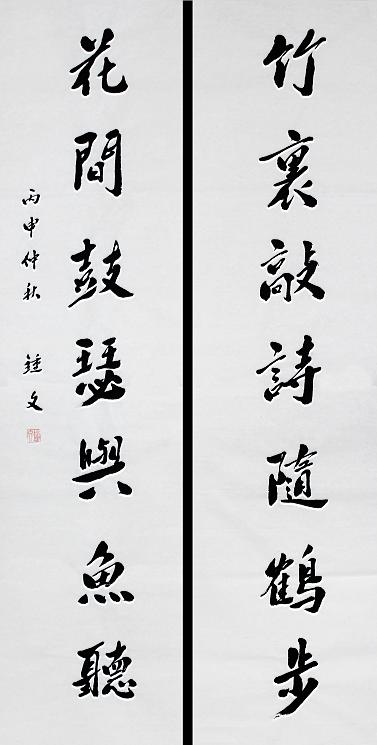 竹裏敲詩隨鶴步
花間鼓瑟與魚聽
丙申仲秋 鍾文